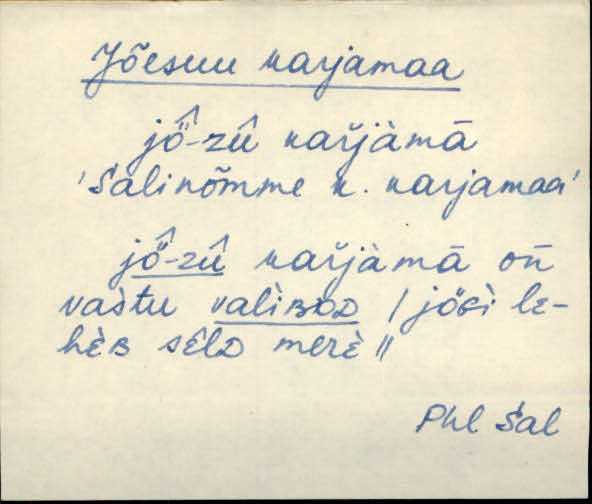 Jõesuu karjamaa
jő̭̂-zû kaŕjàmā
'Salinõmme k. karjamaa'
jő̭̂-zû kaŕjàmā oń
vaśtu valìʙᴏᴅ / jõɢì le-
hèʙ sêlᴅ merè //
Phl Sal